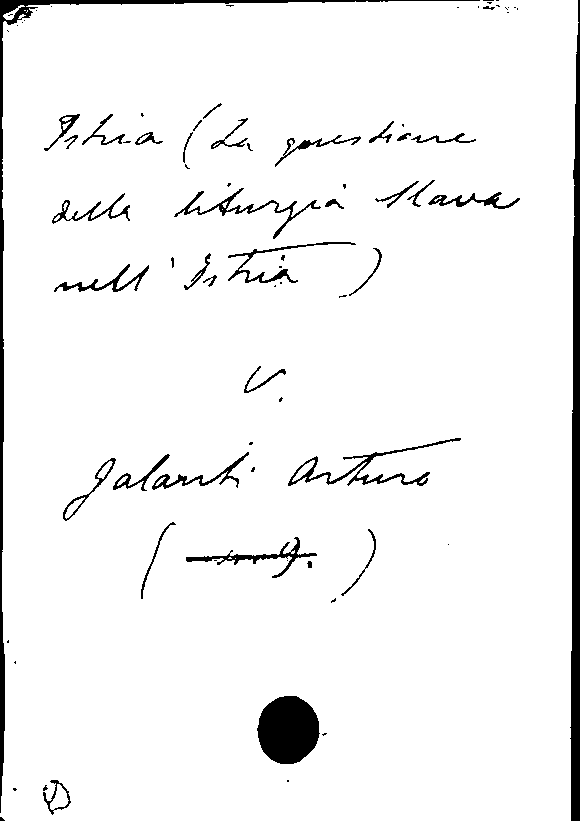 Istria (La questione
della liturgia slava
nell' Istria)
V.
Galanti Arturo